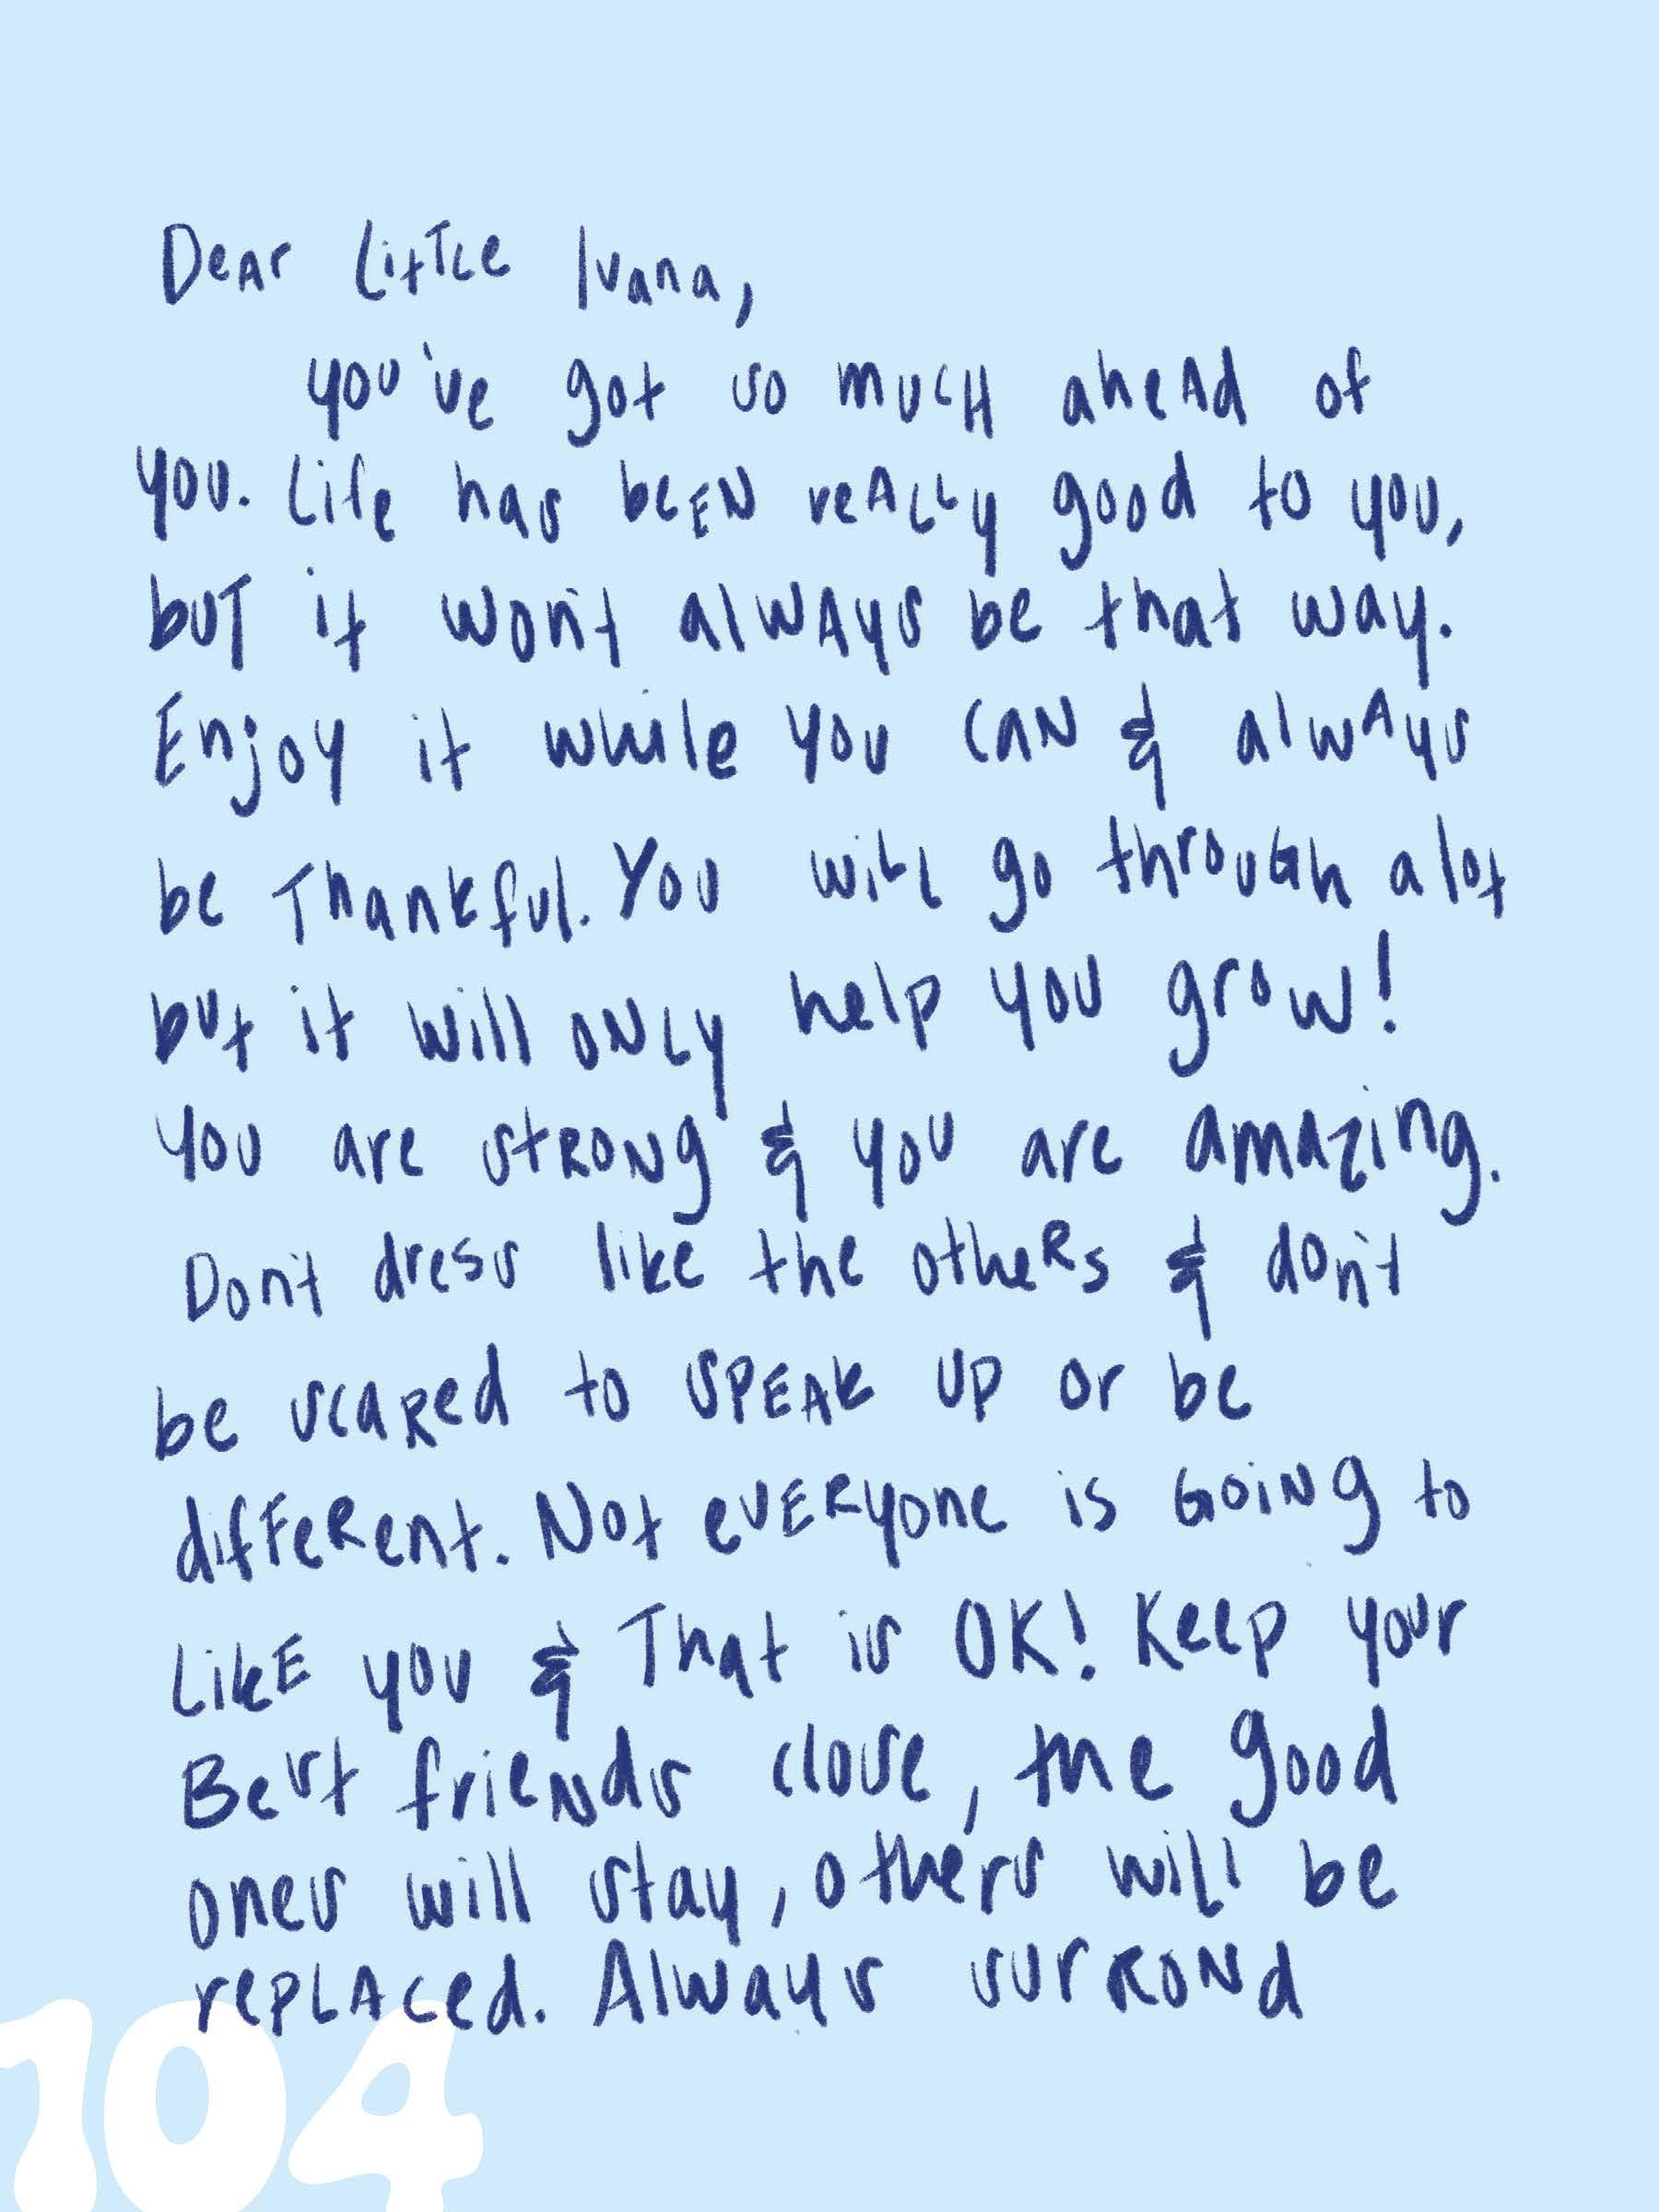 Dear Little Ivana,
you've got so much ahead of
you. Life has been really good to you,
but it won't always be that way.
Enjoy it while you can & always
be Thankful. You will go through a lot
but it will only help you grow!
You are strong & you are amazing.
Don't dress like the others & don't
be scared to speak up or be
different. Not everyone is going to
Like you & That is OK! Keep your
Best friends close, the good
ones will stay, others will be
replaced. Always surrond
104